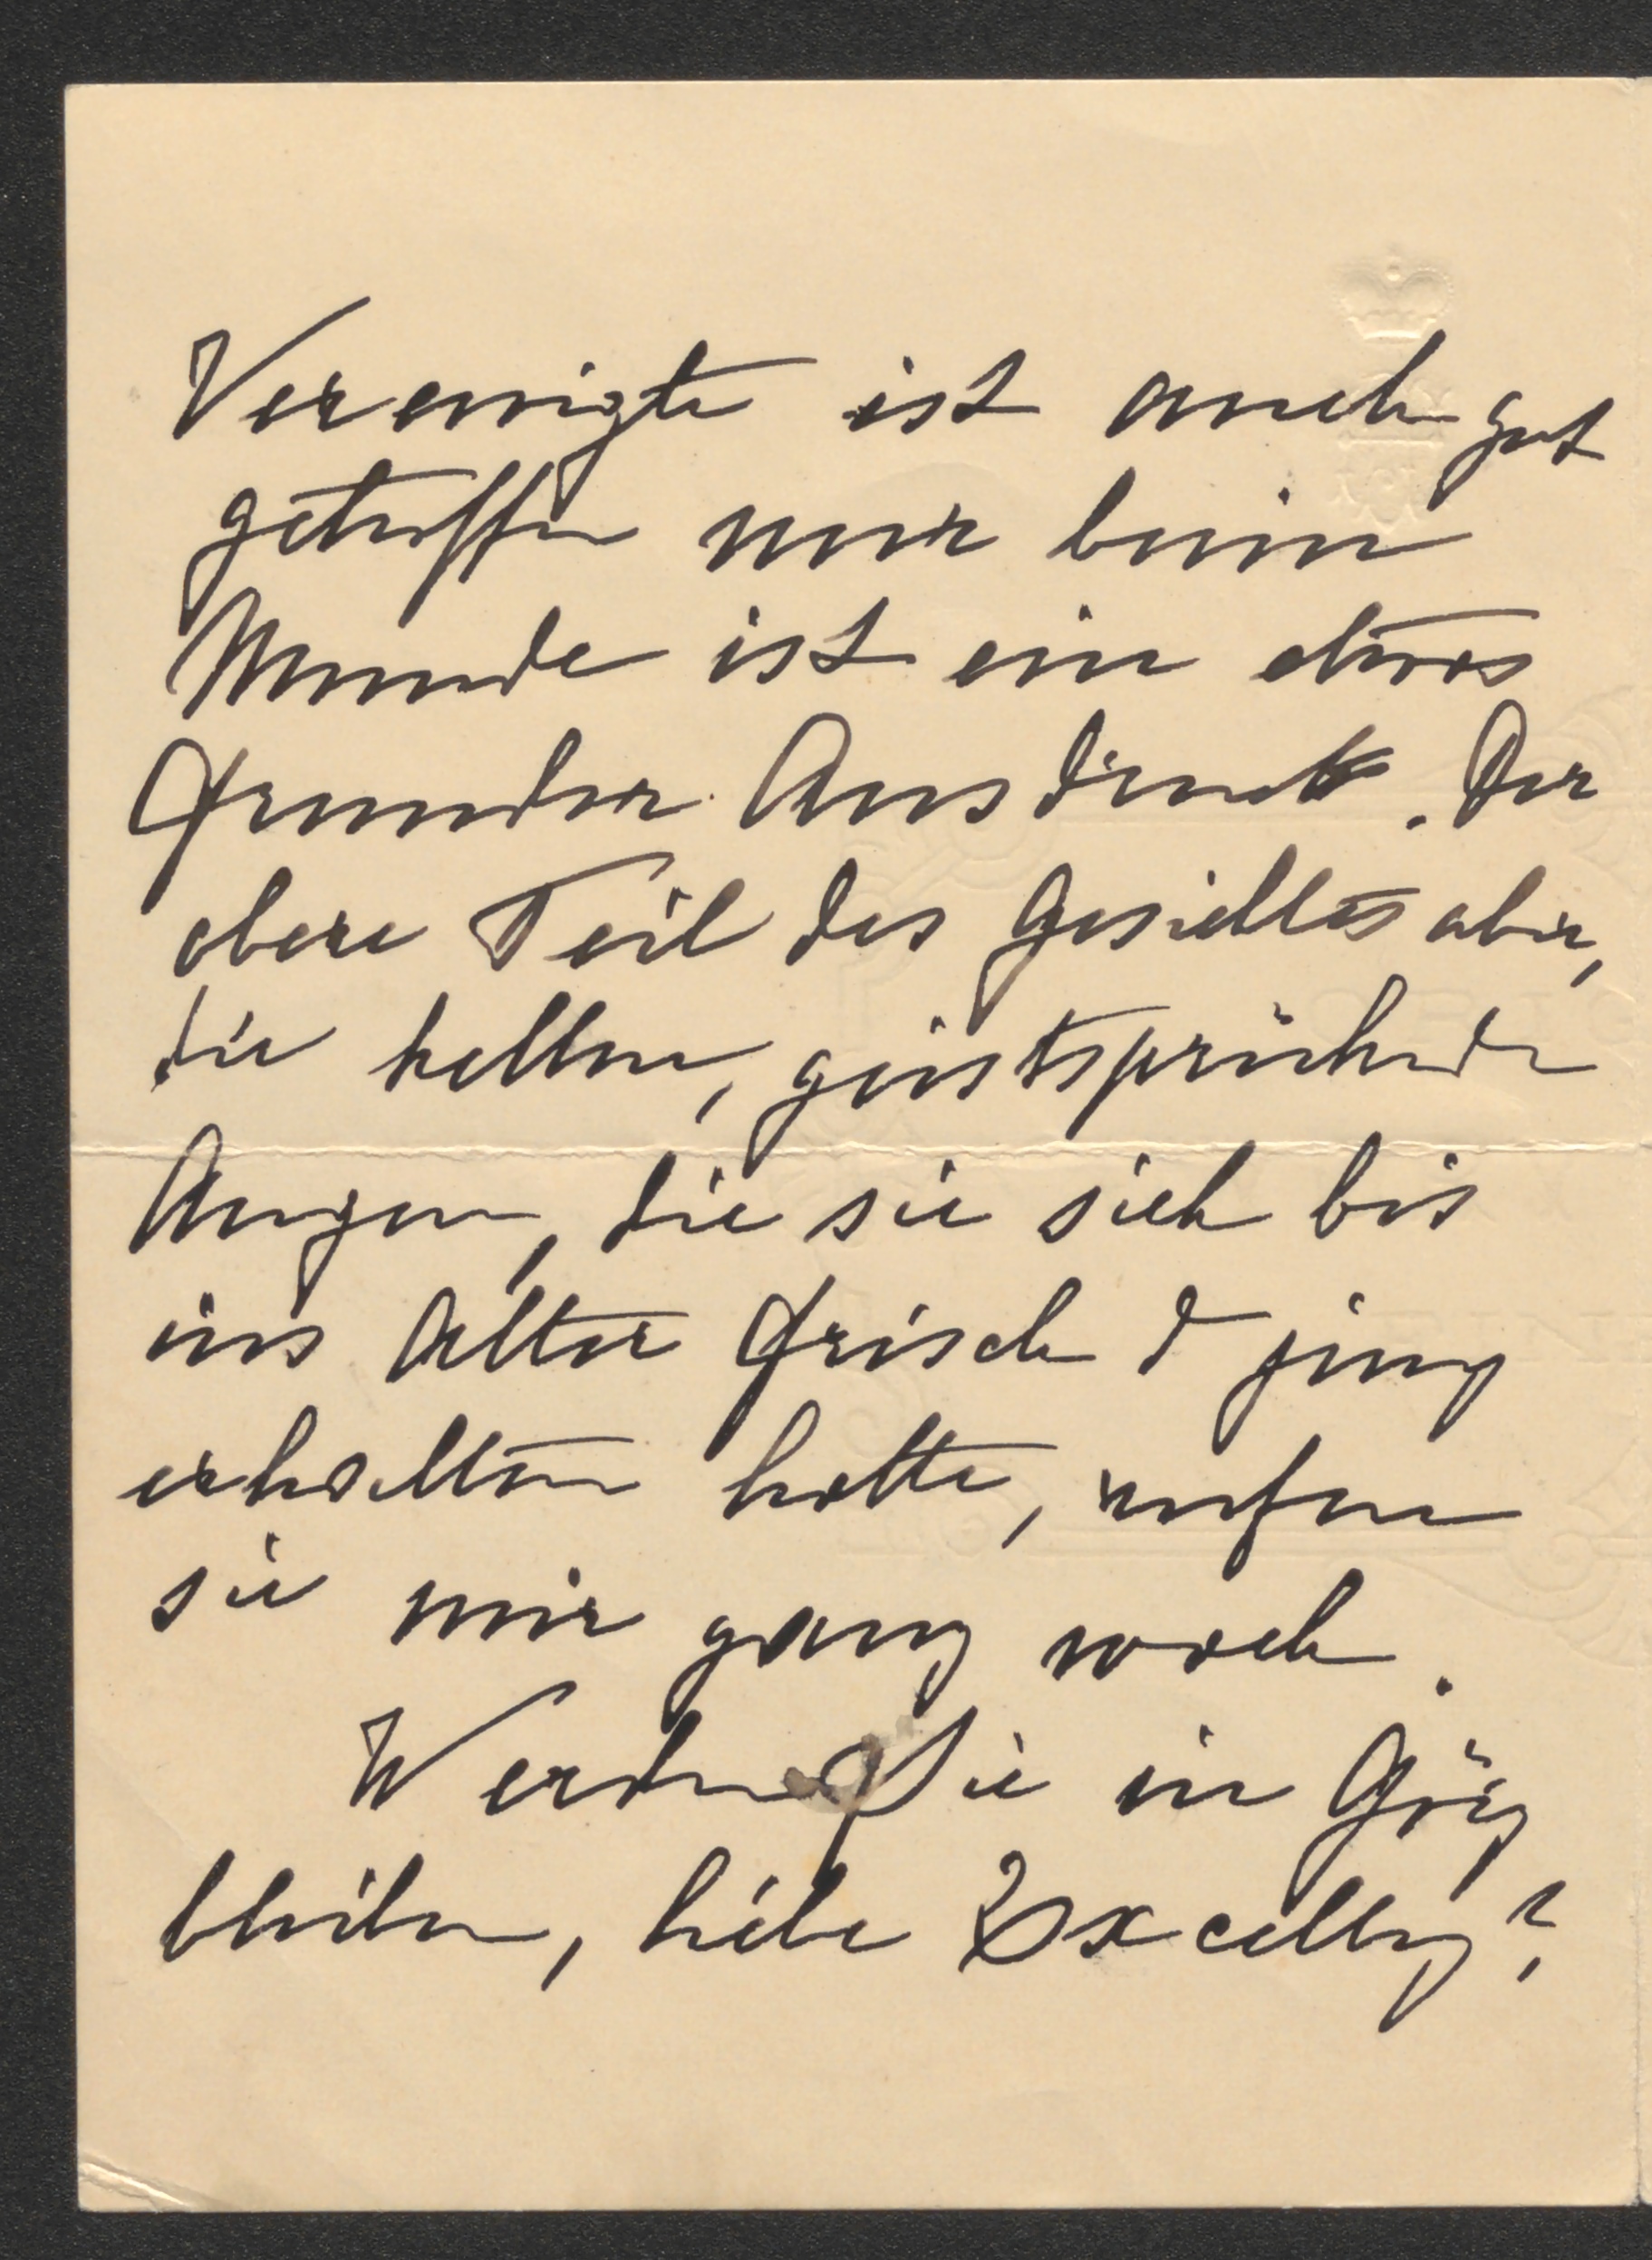 Verewigte ist auch gut
getroffen nur beim
Munde ist ein etwas
fremder Ausdruck. Der
obere Teil des Gesichtes aber,
die hellen, geistsprühenden
Augen, die sie sich bis
ins Alter frisch & jung
erhalten hatte, rufen
sie mir ganz wach.
Werden Sie in Görz
bleiben, liebe Excellenz?